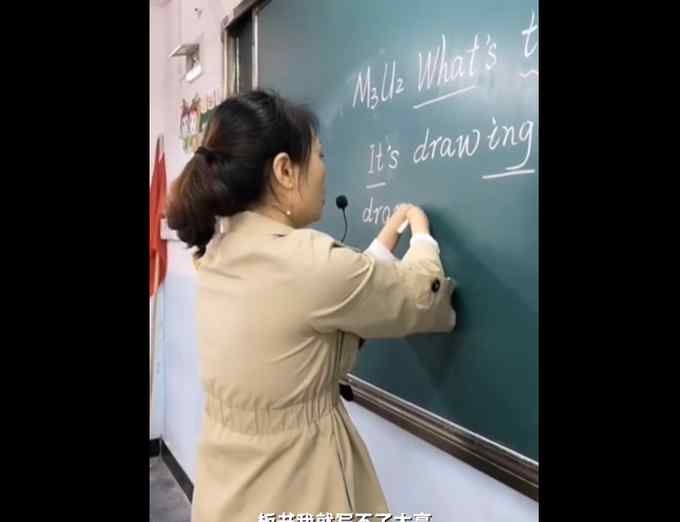 M3U2 What's t
It's drawing
dra
板书我就写不了太高